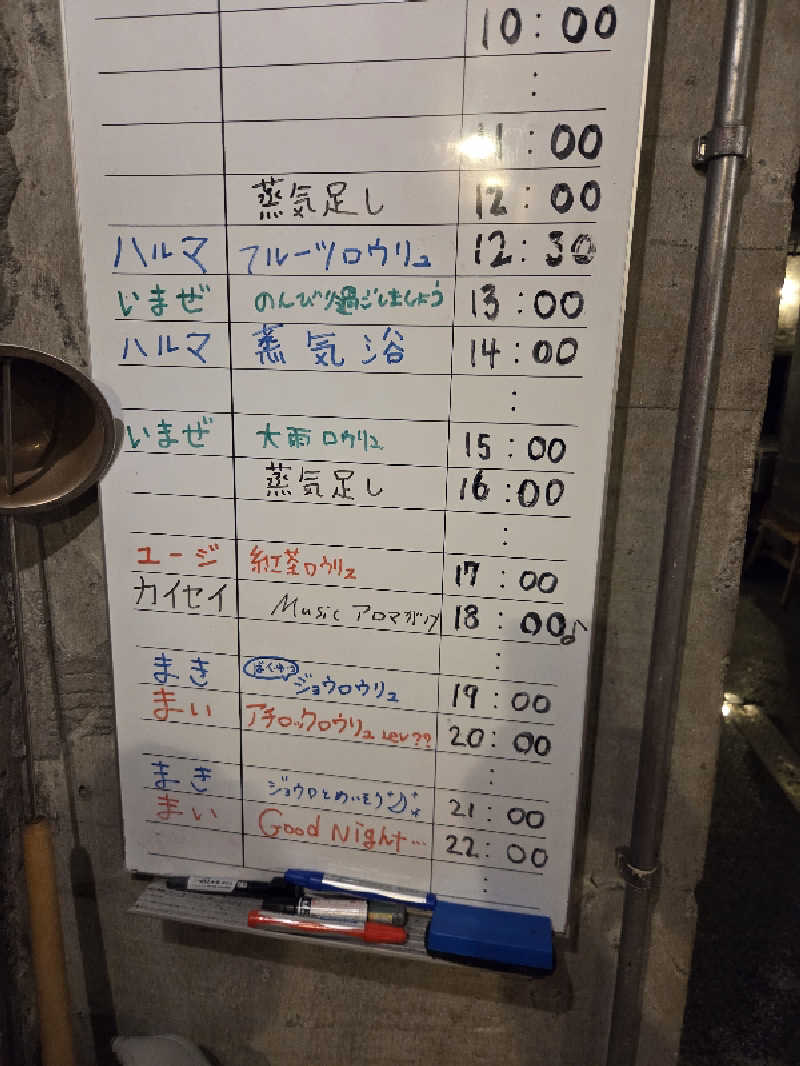 10:00
:
11:00
蒸気足し 12:00
ハルマ フルーツロウリュ 12:30
いまぜ のんびり過ごしましょう 13:00
ハルマ 蒸気浴 14:00
:
いまぜ 大雨ロウリュ 15:00
蒸気足し 16:00
:
ユージ 紅茶ロウリュ 17:00
カイセイ Music アロマ 18:00♪
:
まき ジョウロウリュ 19:00
まい アチロックロウリュ Lev?? 20:00
:
まき ジョウロとめいそう 21:00
まい Good Night… 22:00
: